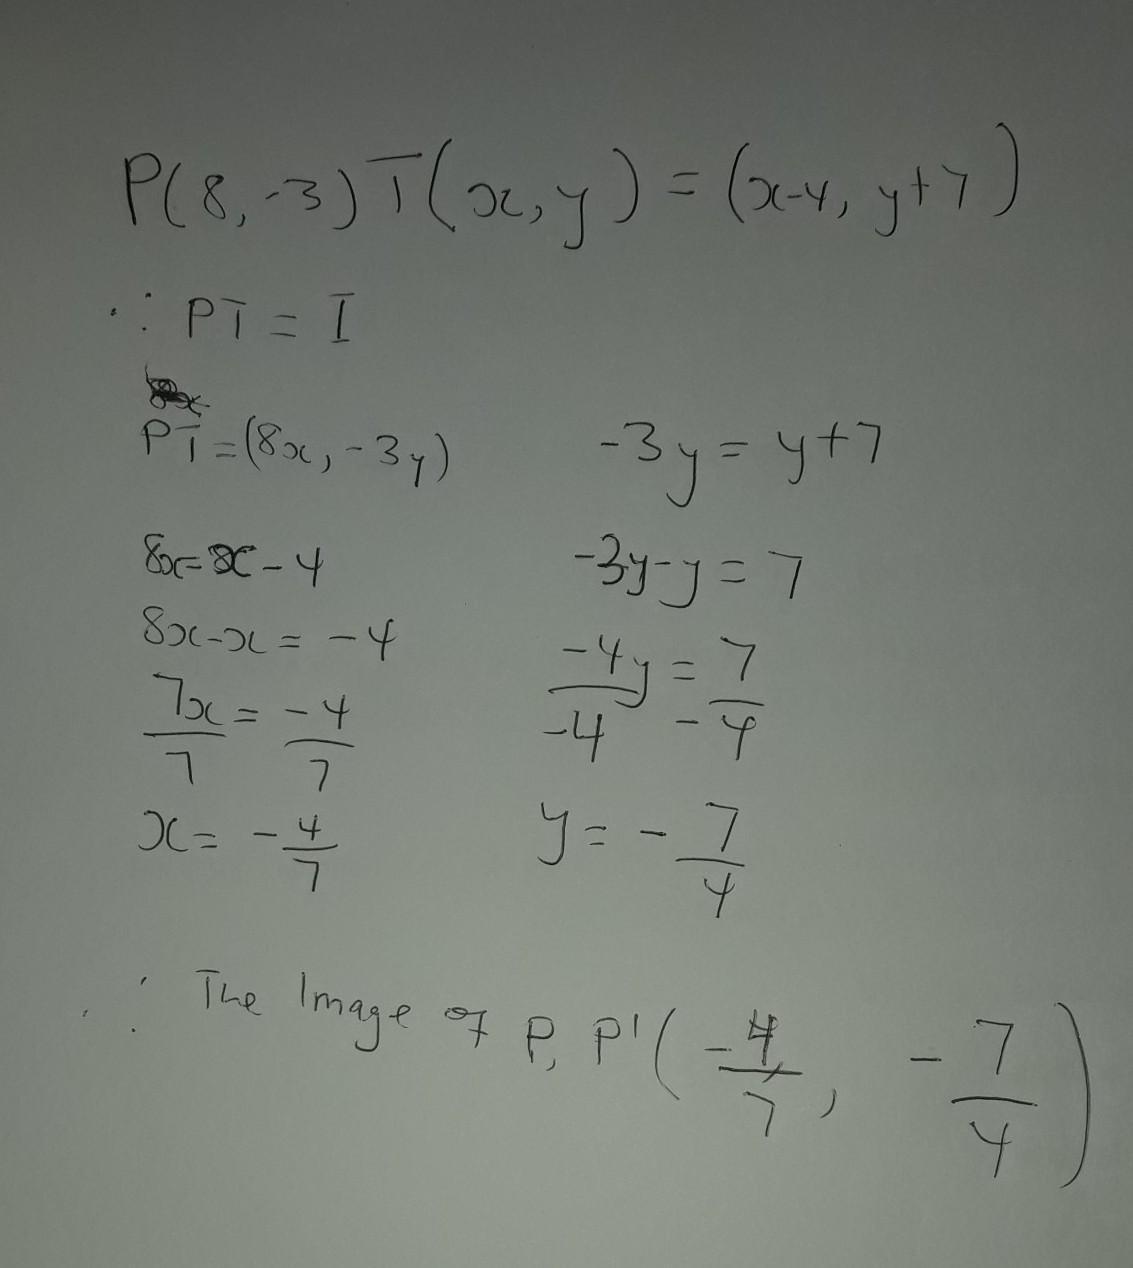 P(8, -3) T(x, y) = (x-4, y+7)
∴ PT = I
PT = (8x, -3y)
8x = x - 4
8x - x = -4
7x/7 = -4/7
x = -4/7
-3y = y+7
-3y - y = 7
-4y/-4 = 7/-4
y = -7/4
∴ The Image of P, P'(-4/7, -7/4)